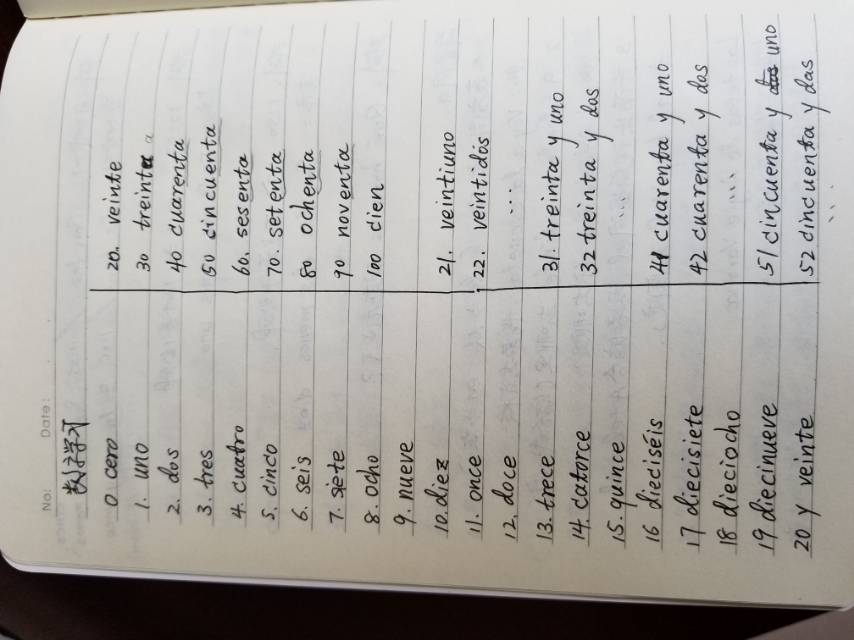 No:
Date:
数字学习
0. cero
1. uno
2. dos
3. tres
4. cuatro
5. cinco
6. seis
7. siete
8. ocho
9. nueve
10. diez
11. once
12. doce
13. trece
14. catorce
15. quince
16 dieciséis
17 diecisiete
18 dieciocho
19 diecinueve
20 y veinte
20. veinte
30 treinta
40 cuarenta
50 cincuenta
60. sesenta
70. setenta
80 ochenta
90 noventa
100 cien
21. veintiuno
22. veintidós
...
31. treinta y uno
32 treinta y dos
...
41 cuarenta y uno
42 cuarenta y dos
...
51 cincuenta y uno
52 cincuenta y dos
...